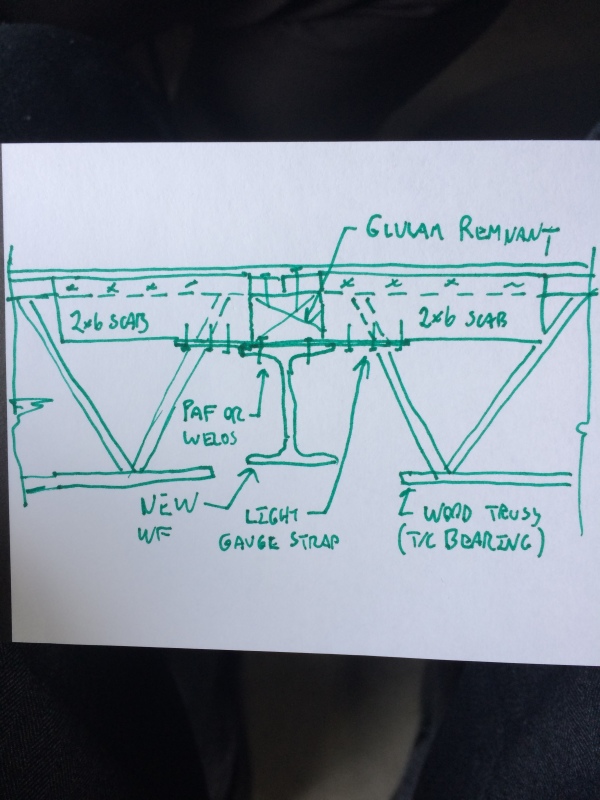 GLULAM REMNANT
2x6 SCAB
2x6 SCAB
PAF OR
WELDS
NEW
WF
LIGHT
GAUGE STRAP
WOOD TRUSS
(T/C BEARING)